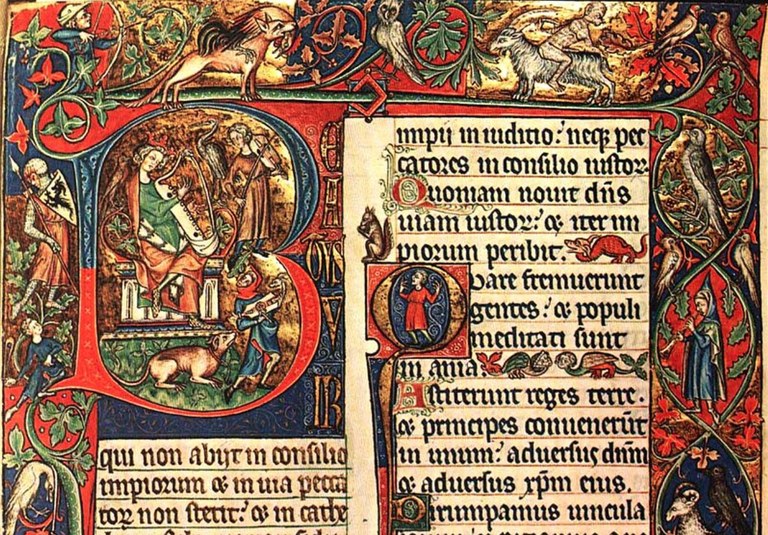 B
V
IR
qui non abijt in consilio
impiorum & in uia pecca
torꝝ non stetit: & in cathe
impij in iuditio: neqꝫ pec
catores in consilio iustoꝝ
Quoniam nouit dn̄s
uiam iustoꝝ: & iter im
piorum peribit.
Quare fremuerunt
gentes: & populi
meditati sunt
inania:
Astiterunt reges terre.
& principes conuenerūt
in unum: aduersus dn̄m
& aduersus xp̄m eius.
Dirumpamus uincula